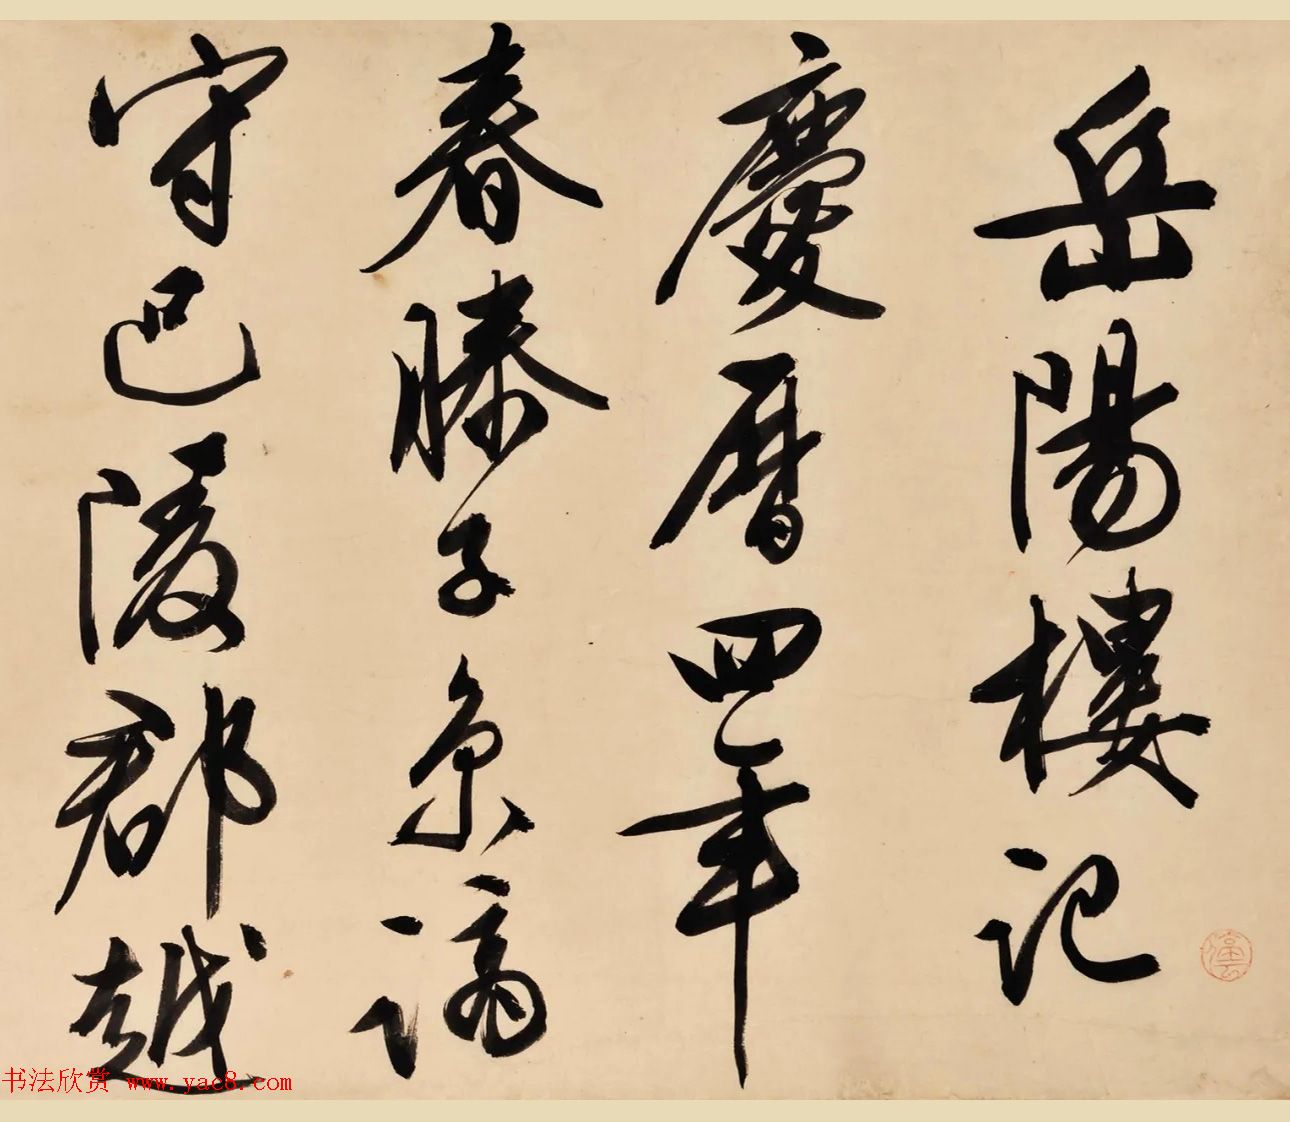 岳陽樓記
慶曆四年
春滕子京謫
守巴陵郡越
书法欣赏 www.yac8.com